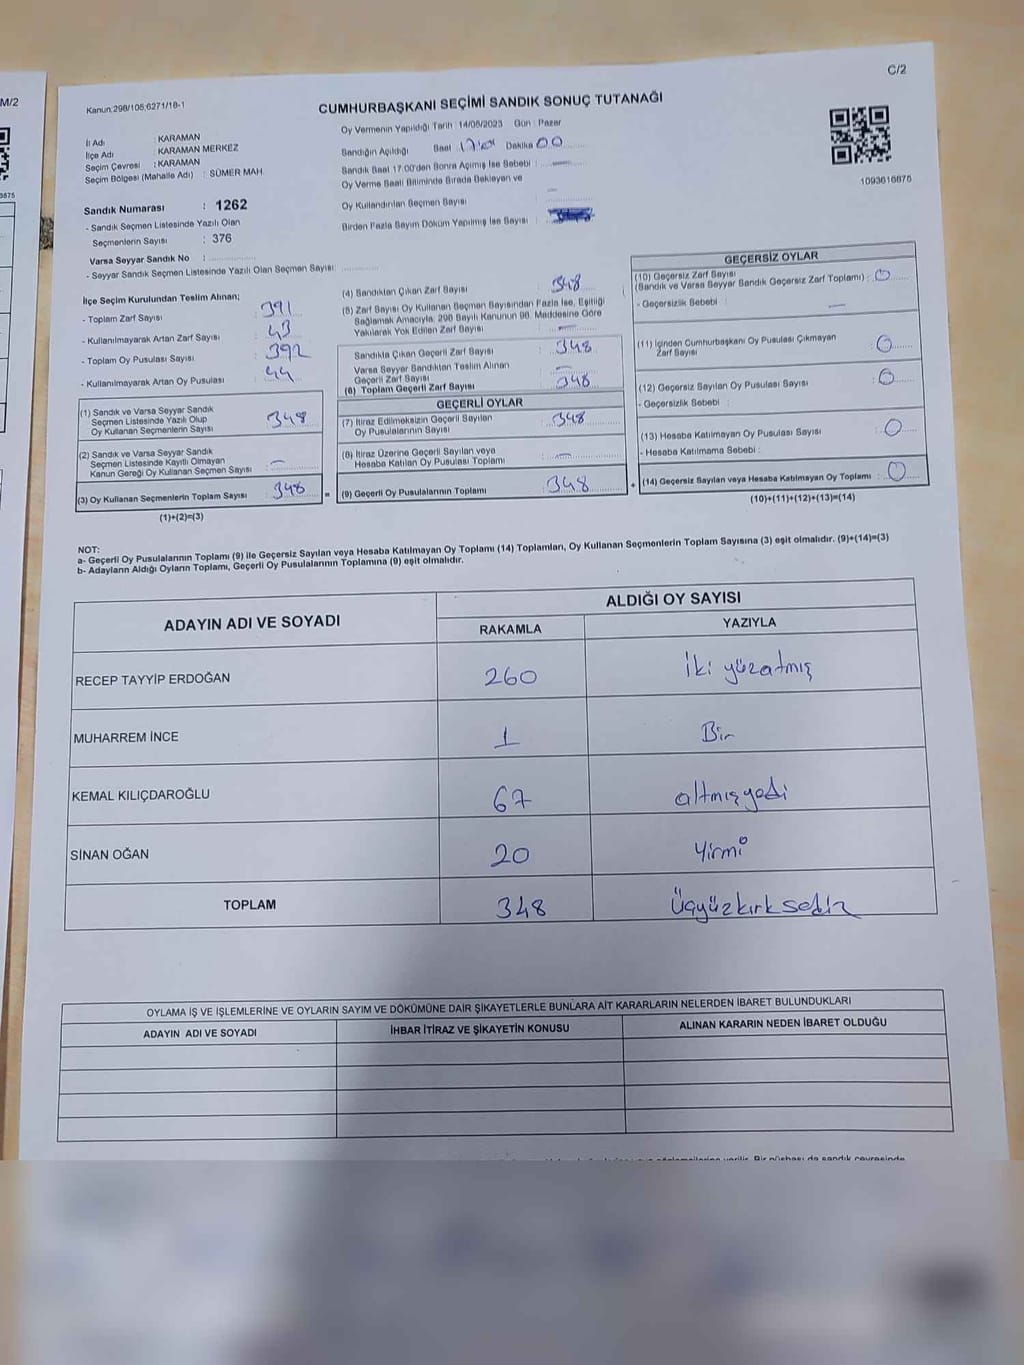 M/2
C/2
Kanun:298/105,6271/18-1
CUMHURBAŞKANI SEÇİMİ SANDIK SONUÇ TUTANAĞI
İl Adı : KARAMAN
İlçe Adı : KARAMAN MERKEZ
Seçim Çevresi : KARAMAN
Seçim Bölgesi (Mahalle Adı) : SÜMER MAH.
Oy Vermenin Yapıldığı Tarih : 14/05/2023 Gün : Pazar
Sandığın Açıldığı Saat Dakika 00
Sandık Saat 17:00'den Sonra Açılmış İse Sebebi :
Oy Verme Saati Bitiminde Sırada Bekleyen ve
Oy Kullandırılan Seçmen Sayısı :
Birden Fazla Sayım Döküm Yapılmış İse Sayısı :
1093616675
Sandık Numarası : 1262
- Sandık Seçmen Listesinde Yazılı Olan
Seçmenlerin Sayısı : 376
Varsa Seyyar Sandık No :
- Seyyar Sandık Seçmen Listesinde Yazılı Olan Seçmen Sayısı:
İlçe Seçim Kurulundan Teslim Alınan;
- Toplam Zarf Sayısı : 391
- Kullanılmayarak Artan Zarf Sayısı : 43
- Toplam Oy Pusulası Sayısı : 392
- Kullanılmayarak Artan Oy Pusulası : 44
(1) Sandık ve Varsa Seyyar Sandık
Seçmen Listesinde Yazılı Olup
Oy Kullanan Seçmenlerin Sayısı : 348
(2) Sandık ve Varsa Seyyar Sandık
Seçmen Listesinde Kayıtlı Olmayan
Kanun Gereği Oy Kullanan Seçmen Sayısı : -
(3) Oy Kullanan Seçmenlerin Toplam Sayısı : 348
(1)+(2)=(3)
(4) Sandıktan Çıkan Zarf Sayısı : 348
(5) Zarf Sayısı Oy Kullanan Seçmen Sayısından Fazla İse, Eşitliği
Sağlamak Amacıyla, 298 Sayılı Kanunun 98. Maddesine Göre
Yakılarak Yok Edilen Zarf Sayısı : -
Sandıkta Çıkan Geçerli Zarf Sayısı : 348
Varsa Seyyar Sandıktan Teslim Alınan
Geçerli Zarf Sayısı : -
(6) Toplam Geçerli Zarf Sayısı : 348
GEÇERLİ OYLAR
(7) İtiraz Edilmeksizin Geçerli Sayılan
Oy Pusulalarının Sayısı : 348
(8) İtiraz Üzerine Geçerli Sayılan veya
Hesaba Katılan Oy Pusulası Toplamı : -
= (9) Geçerli Oy Pusulalarının Toplamı : 348
GEÇERSİZ OYLAR
(10) Geçersiz Zarf Sayısı
(Sandık ve Varsa Seyyar Sandık Geçersiz Zarf Toplamı) : 0
- Geçersizlik Sebebi : -
(11) İçinden Cumhurbaşkanı Oy Pusulası Çıkmayan
Zarf Sayısı : 0
(12) Geçersiz Sayılan Oy Pusulası Sayısı : 0
- Geçersizlik Sebebi :
(13) Hesaba Katılmayan Oy Pusulası Sayısı : 0
- Hesaba Katılmama Sebebi :
+ (14) Geçersiz Sayılan veya Hesaba Katılmayan Oy Toplamı : 0
(10)+(11)+(12)+(13)=(14)
NOT:
a- Geçerli Oy Pusulalarının Toplamı (9) ile Geçersiz Sayılan veya Hesaba Katılmayan Oy Toplamı (14) Toplamları, Oy Kullanan Seçmenlerin Toplam Sayısına (3) eşit olmalıdır. (9)+(14)=(3)
b- Adayların Aldığı Oyların Toplamı, Geçerli Oy Pusulalarının Toplamına (9) eşit olmalıdır.
ADAYIN ADI VE SOYADI ALDIĞI OY SAYISI
RAKAMLA YAZIYLA
RECEP TAYYİP ERDOĞAN 260 İki yüzatmış
MUHARREM İNCE 1 Bir
KEMAL KILIÇDAROĞLU 67 altmışyedi
SİNAN OĞAN 20 Yirmi
TOPLAM 348 Üçyüzkırksekiz
OYLAMA İŞ VE İŞLEMLERİNE VE OYLARIN SAYIM VE DÖKÜMÜNE DAİR ŞİKAYETLERLE BUNLARA AİT KARARLARIN NELERDEN İBARET BULUNDUKLARI
ADAYIN ADI VE SOYADI İHBAR İTİRAZ VE ŞİKAYETİN KONUSU ALINAN KARARIN NEDEN İBARET OLDUĞU